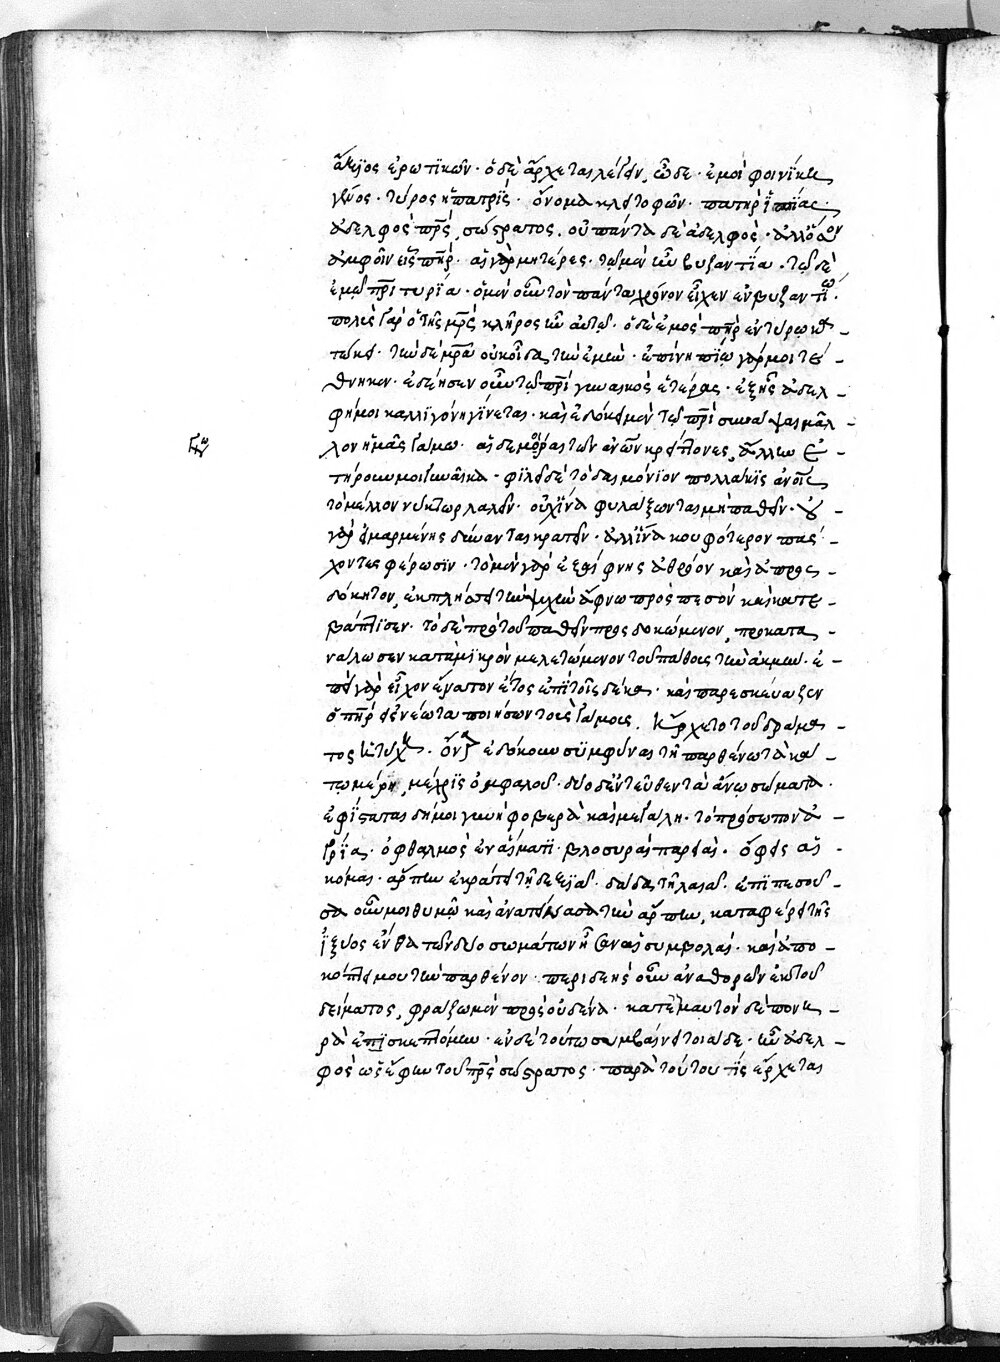 ἄξιος ἐρωτικῶν· ὁ δὲ ἄρχεται λέγειν, ὧδε· ἐμοὶ φοινίκη
γένος· τύρος ἡ πατρὶς· ὄνομα κλειτοφῶν· πατὴρ ἱππίας·
ἀδελφὸς πρς, σώστρατος. οὐ πάντα δὲ ἀδελφὸς· ἀλλ' ὅσον
ἀμφοῖν εἷς πηρ· αἱ γὰρ μητέρες· τῶ μὲν ἦν βυζαντία· τῶ δὲ
ἐμῶ πρι τυρία· ὁ μὲν οὖν τὸν πάντα χρόνον εἶχεν ἐν βυζαντίω·
πολὺς γὰρ ὁ τῆς μρς κλῆρος ἦν αὐτῶ· ὁ δὲ ἐμὸς πηρ ἐν τύρω κα
τώκει· τὴν δὲ μρα οὐκ οἶδα τὴν ἐμὴν· ἐπὶ νηπίω γάρ μοι τέ
θνηκεν· ἐδέησεν οὖν τῶ πρι γυναικὸς ἑτέρας· ἐξ ἧς ἀδελ
φή μοι καλλιγόνη γίνεται· καὶ ἐδόκει μὲν τῶ πρι συνάψαι μᾶλ
λον ἡμᾶς γάμω· αἱ δὲ μοῖραι τῶν ἀνων κρείττονες, ἄλλην ἐ
τήρουν μοι γυναῖκα· φιλεῖ δὲ τὸ δαιμόνιον πολλάκις ἀνοις
τὸ μέλλον νύκτωρ λαλεῖν· οὐχ ἵνα φυλάξωνται μὴ παθεῖν· οὐ
γὰρ εἱμαρμένης δύνανται κρατεῖν· ἀλλ' ἵνα κουφότερον πάσ
χοντες φέρωσιν· τὸ μὲν γὰρ ἐξαίφνης ἀθρόον καὶ ἀπροσ
δόκητον, ἐκπλήσσει τὴν ψυχὴν ἄφνω προσπεσὸν καὶ κατε
βάπτισεν· τὸ δὲ πρὸ τοῦ παθεῖν προσδοκώμενον, προκατα
νάλωσεν κατὰ μικρὸν μελετώμενον τοῦ πάθους τὴν ἀκμὴν· ἐ
πεὶ γὰρ εἶχον ἔνατον ἔτος ἐπὶ τοῖς δέκα· καὶ παρεσκεύαζεν
ὁ πηρ εἰς νέωτα ποιήσων τοὺς γάμους, ἤρχετο τοῦ δράμα
τος ἡ τύχη· ὄναρ ἐδόκουν συμφῦναι τῆ παρθένω τὰ κά
τω μέρη, μέχρις ὀμφαλοῦ· δύο δ' ἐντεῦθεν τὰ ἄνω σώματα·
ἐφίσταται δή μοι γυνὴ φοβερὰ καὶ μεγάλη· τὸ πρόσωπον ἀ
γρία· ὀφθαλμὸς ἐν αἵματι· βλοσυραὶ παρειαὶ· ὄφεις αἱ
κόμαι· ἅρπην ἐκράτει τῆ δεξιᾶ· δᾶδα τῆ λαιᾶ· ἐπιπεσοῦ
σα οὖν μοι θυμῶ καὶ ἀνατείνασα τὴν ἅρπην, καταφέρει τῆς
ἰξύος ἔνθα τῶν δύο σωμάτων ἦσαν αἱ συμβολαὶ· καὶ ἀπο
κόπτει μου τὴν παρθένον· περιδεὴς οὖν ἀναθορὼν ἐκ τοῦ
δείματος, φράζω μὲν πρὸς οὐδένα· κατ' ἐμαυτὸν δὲ πονη
ρὰ ἐπισκεπτόμην· ἐν δὲ τούτω συμβαίνει τοιάδε· ἦν ἀδελ
φὸς ὡς ἔφην τοῦ πρς σώστρατος· παρὰ τούτου τὶς ἔρχεται